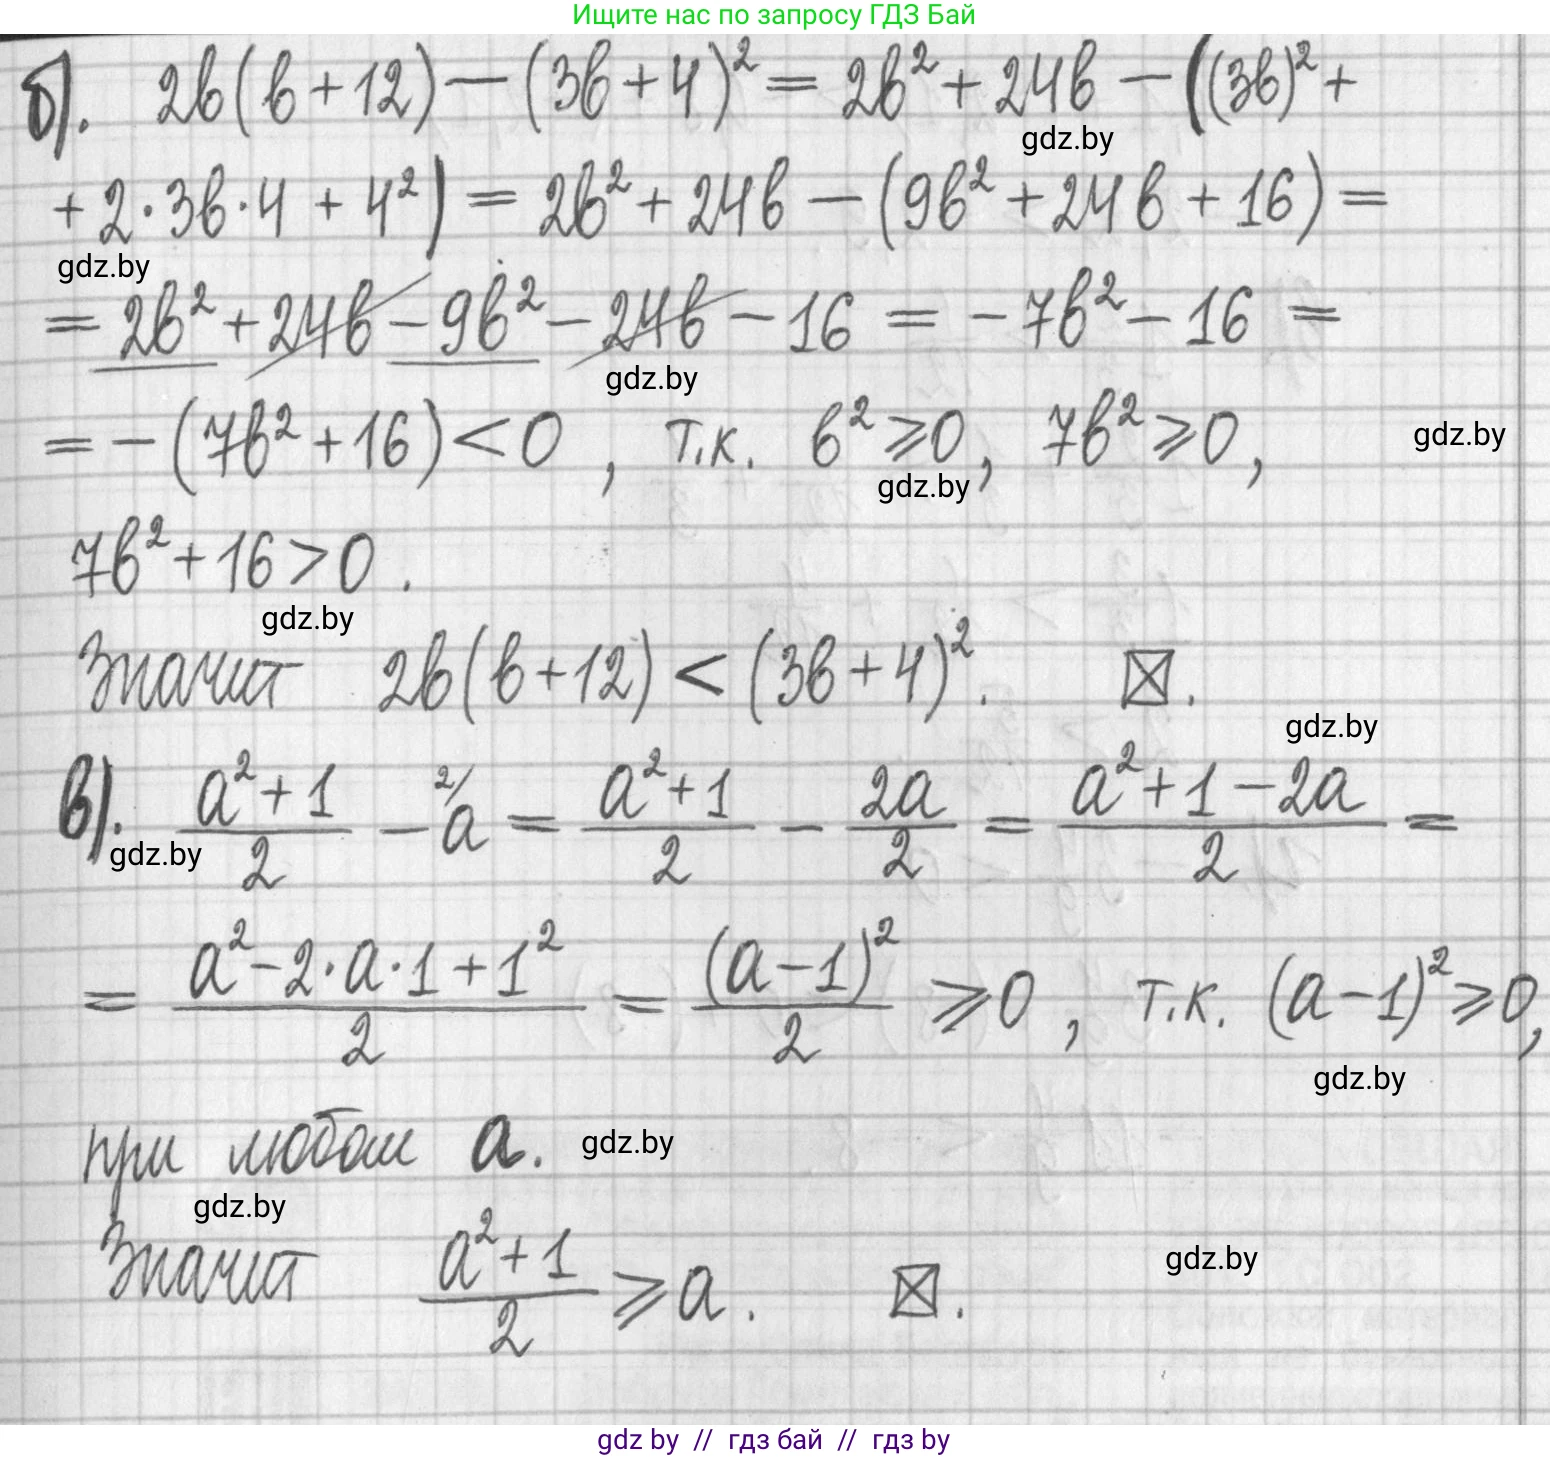 Ищите нас по запросу ГДЗ Бай
б). 2b(b+12)-(3b+4)²=2b²+24b-((3b)²+
gdz.by
+2·3b·4+4²)=2b²+24b-(9b²+24b+16)=
gdz.by
=2b²+24b-9b²-24b-16=-7b²-16=
gdz.by
=-(7b²+16)<0, т.к. b²⩾0, 7b²⩾0,
gdz.by
gdz.by
7b²+16>0.
gdz.by
Значит 2b(b+12)<(3b+4)². ☒.
gdz.by
в). (a²+1)/2 - ²⁄a = (a²+1)/2 - 2a/2 = (a²+1-2a)/2 =
gdz.by
= (a²-2·a·1+1²)/2 = (a-1)²/2 ⩾0, т.к. (a-1)²⩾0,
gdz.by
при любом a.
gdz.by
gdz.by
Значит (a²+1)/2 ⩾ a. ☒.
gdz.by
gdz by // гдз бай // гдз by